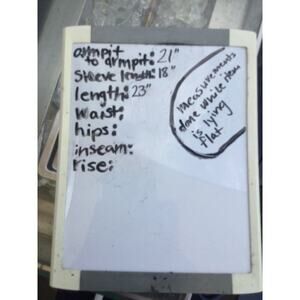 armpit
to armpit: 21"
Sleeve length: 18"
length: 23"
waist:
hips:
inseam:
rise:
measurements
done while item
is lying
flat